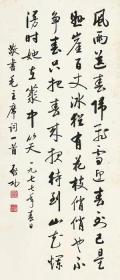 風雨送春歸飛雪迎春到已是
懸崖百丈冰猶有花枝俏俏也不
争春只把春來報待到山花爛
漫时她在叢中笑 一九七七年春日
敬書毛主席詞一首 啟功